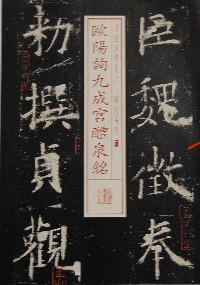 臣魏徵奉
歐陽詢九成宮醴泉銘
勑撰貞觀